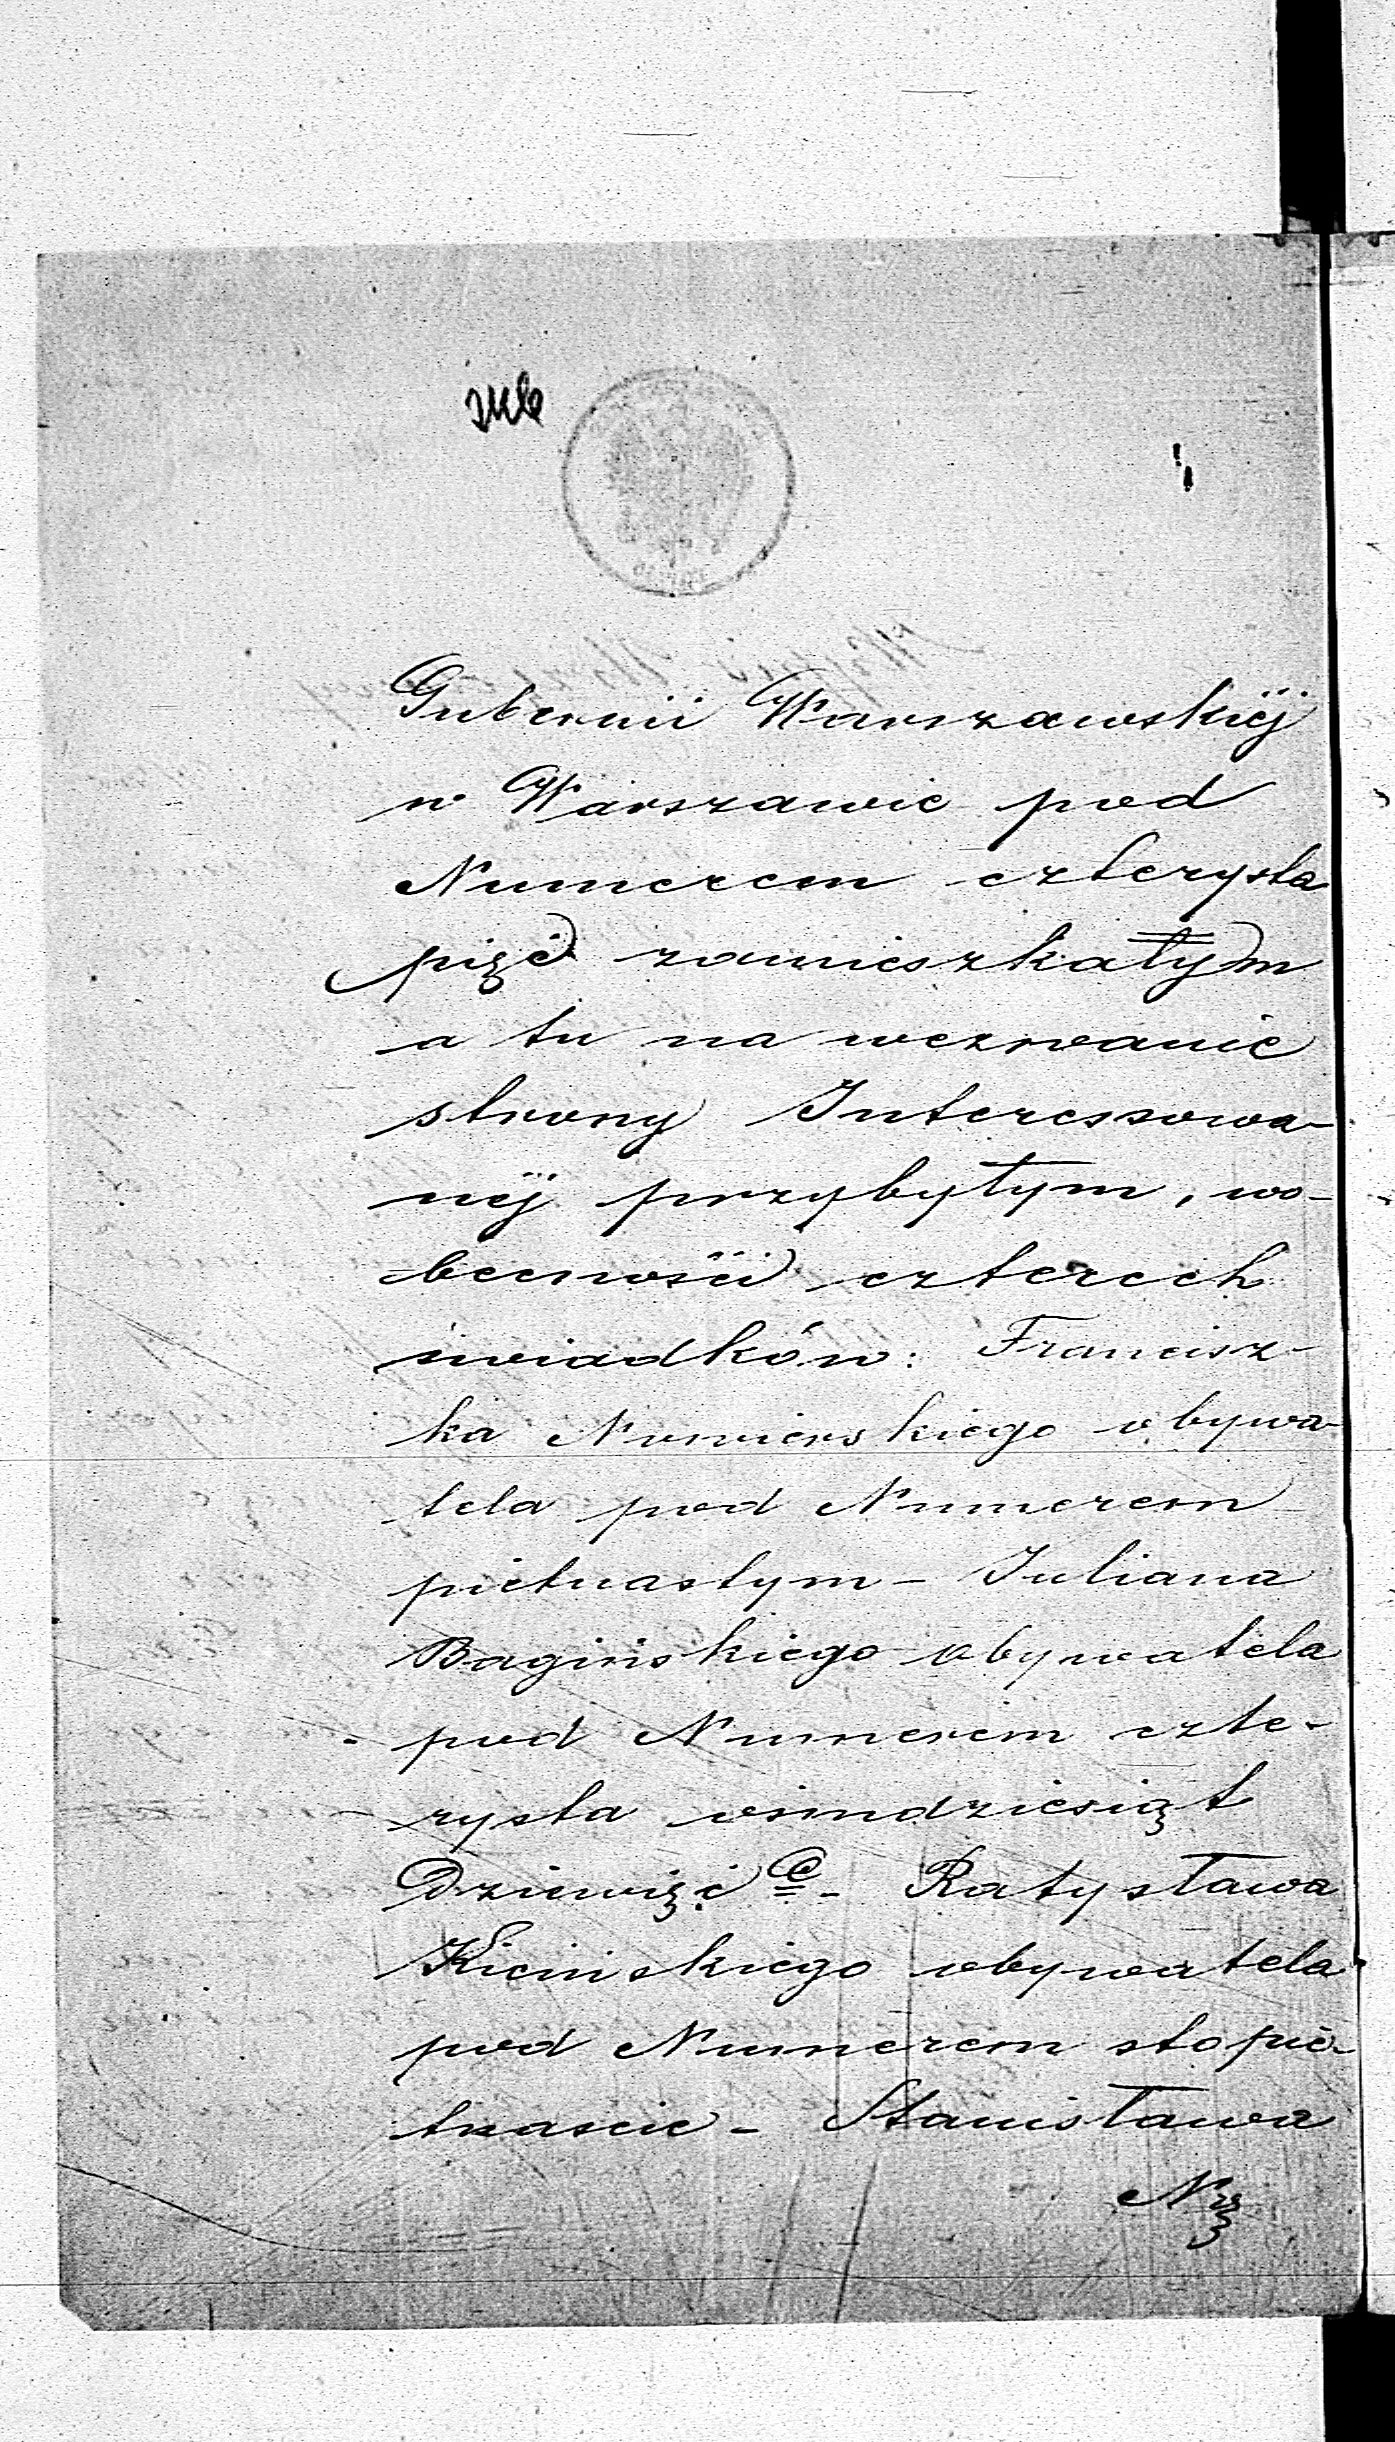 Gubernii Warszawskiéj
w Warszawie pod
Numerem czterysta
pięć zamieszkałym
a tu na wezwanie
strony Interessowa-
néj przybyłym, wo-
becności czterech
świadków: Francisz-
ka obywa-
tela pod Numerem
pietnastym - Juliana
Bagińskiego obywatela
pod Numerem czte-
rysta ośmdziesiąt
Dziewięć C - Ratysława
Kicińskiego obywatela
pod Numerem sto pię-
tnaście - Stanisława